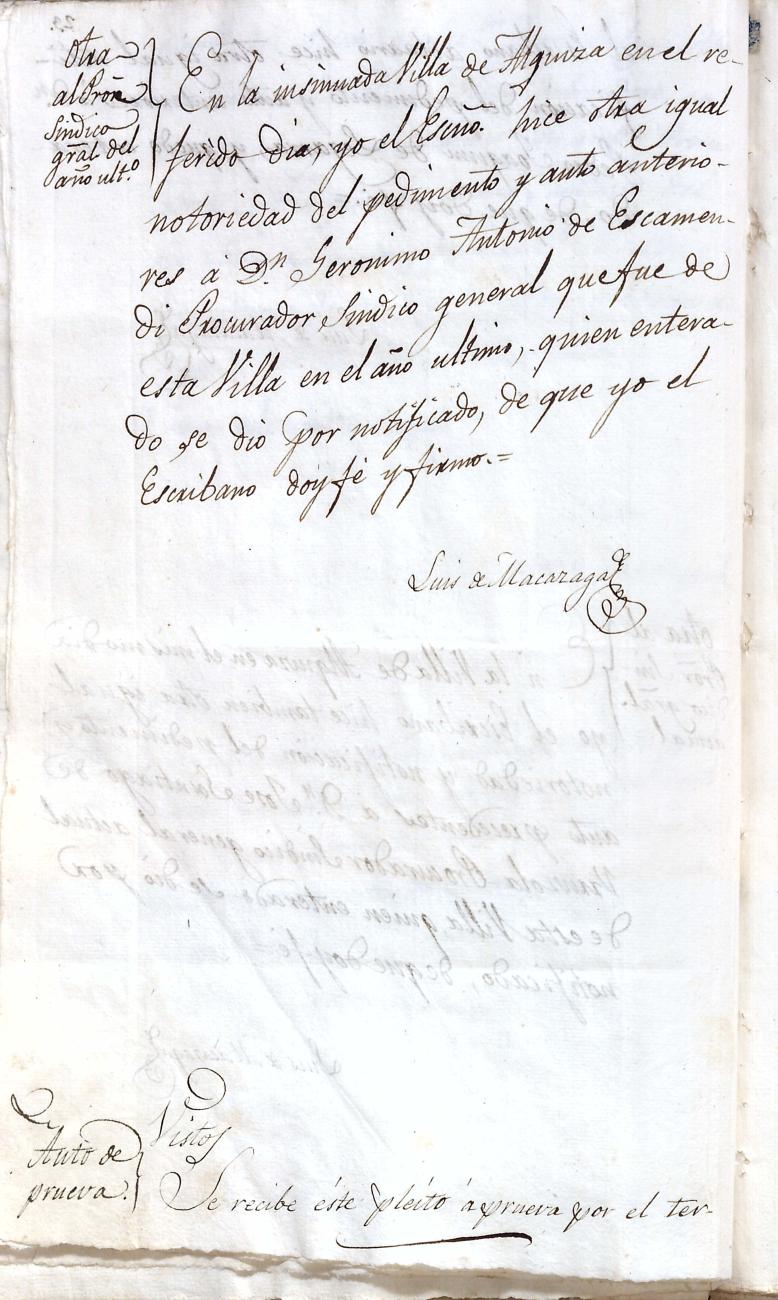 Otra
al Prōr
Síndico
gräl del
año ult.º
En la insinuada Villa de Alquiza en el re-
ferido dia, yo el Escñō. hice otra igual
notoriedad del pedimento y auto anterio-
res á D.n Geronimo Antonio de Escamen-
di Procurador Sindico general que fue de
esta Villa en el año ultimo, quien entera-
do se dió por notificado, de que yo el
Escribano doy fé y firmo.=
Luis de Macazaga
Auto de
prueva.
Vistos
Se recibe éste pleito á prueva por el ter-